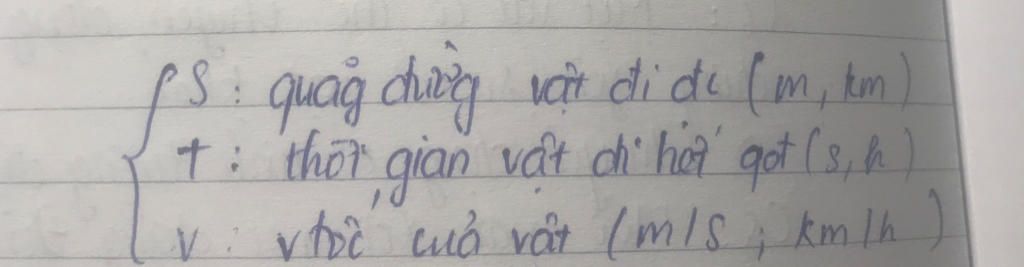 S : quãg đường vật đi đc (m, km)
t : thời gian vật đi hết qđt (s, h)
v : vtốc của vật (m/s ; km/h)